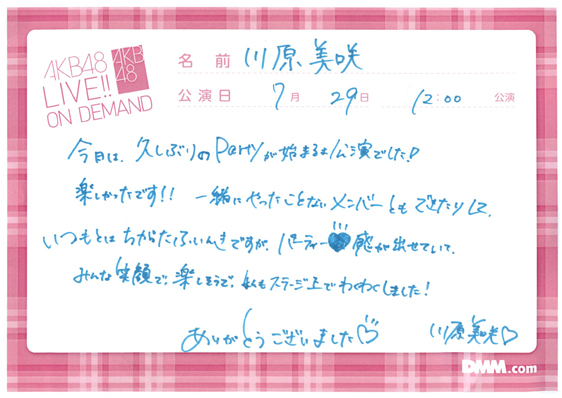 AKB48
LIVE!!
ON DEMAND
AKB
48
名前 川原美咲
公演日 7月 29日 12:00 公演
今日は、久しぶりのPartyが始まるよ公演でした!
楽しかったです!! 一緒にやったことないメンバーともできたりして、
いつもとはちがったふいんきですが、パーティー感が出せていて、
みんな笑顔で、楽しそうで、私もステージ上でわくわくしました!
ありがとうございました♡ 川原美咲♡
DMM.com